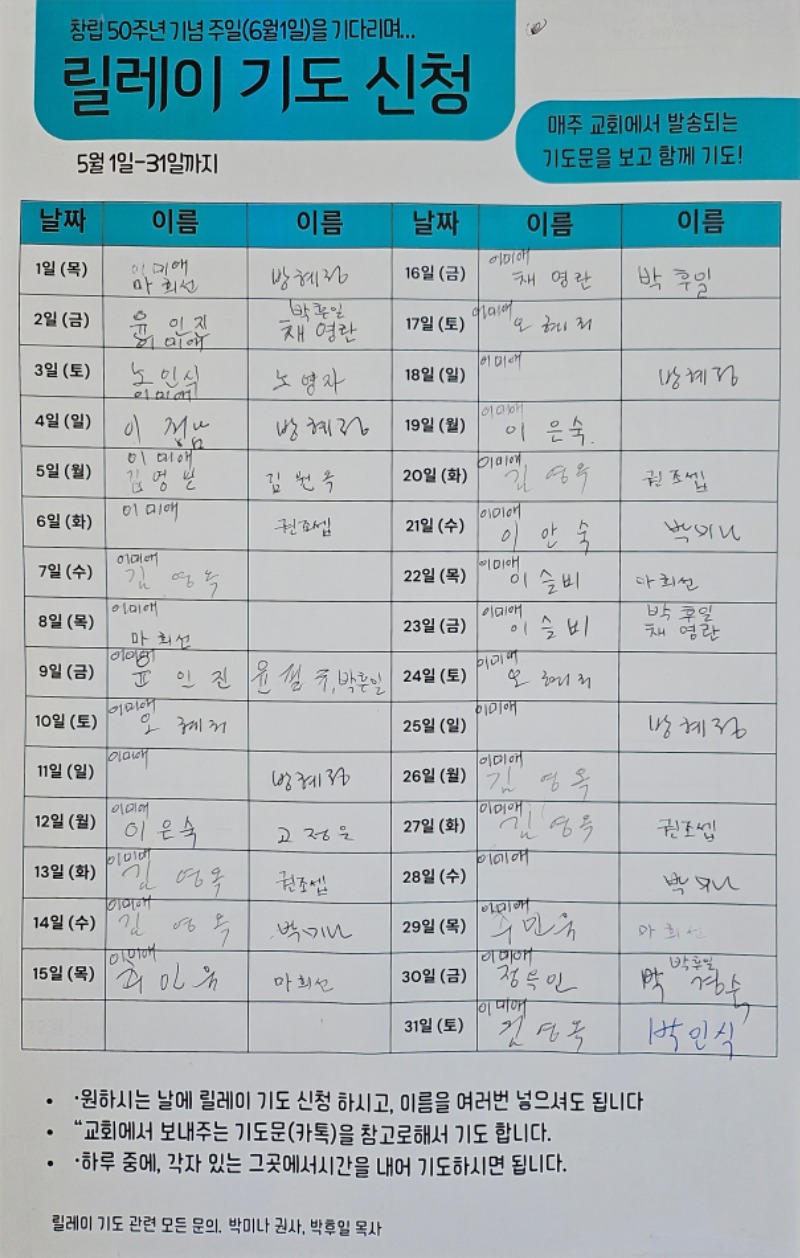 창립 50주년 기념 주일(6월1일)을 기다리며...
릴레이 기도 신청
매주 교회에서 발송되는
기도문을 보고 함께 기도!
5월 1일-31일까지
날짜 이름 이름 날짜 이름 이름
1일 (목) 이미애 마희선 방혜정 16일 (금) 이미애 채영란 박후일
2일 (금) 윤인진 이미애 박후일 채영란 17일 (토) 이미애 오혜리
3일 (토) 노인식 이미애 노영자 18일 (일) 이미애 방혜정
4일 (일) 이 방혜정 19일 (월) 이미애 이은숙.
5일 (월) 이미애 김영분 김분옥 20일 (화) 이미애 김영옥 권조셉
6일 (화) 이미애 권조셉 21일 (수) 이미애 이안숙 박미나
7일 (수) 이미애 김영옥 22일 (목) 이미애 이슬비 마희선
8일 (목) 이미애 마희선 23일 (금) 이미애 이슬비 박후일 채영란
9일 (금) 이미애 윤인진 박후일 24일 (토) 이미애 오혜리
10일 (토) 이미애 오혜리 25일 (일) 이미애 방혜정
11일 (일) 이미애 방혜정 26일 (월) 이미애 김영옥
12일 (월) 이미애 이은숙 고정은 27일 (화) 이미애 김영옥 권조셉
13일 (화) 이미애 김영옥 권조셉 28일 (수) 이미애 박미나
14일 (수) 이미애 김영옥 박미나 29일 (목) 이미애 마희선
15일 (목) 이미애 마희선 30일 (금) 이미애 박후일 박경숙
31일 (토) 이미애 김영옥 박인식
• ·원하시는 날에 릴레이 기도 신청 하시고, 이름을 여러번 넣으셔도 됩니다
• “교회에서 보내주는 기도문(카톡)을 참고로해서 기도 합니다.
• ·하루 중에, 각자 있는 그곳에서시간을 내어 기도하시면 됩니다.
릴레이 기도 관련 모든 문의. 박미나 권사, 박후일 목사